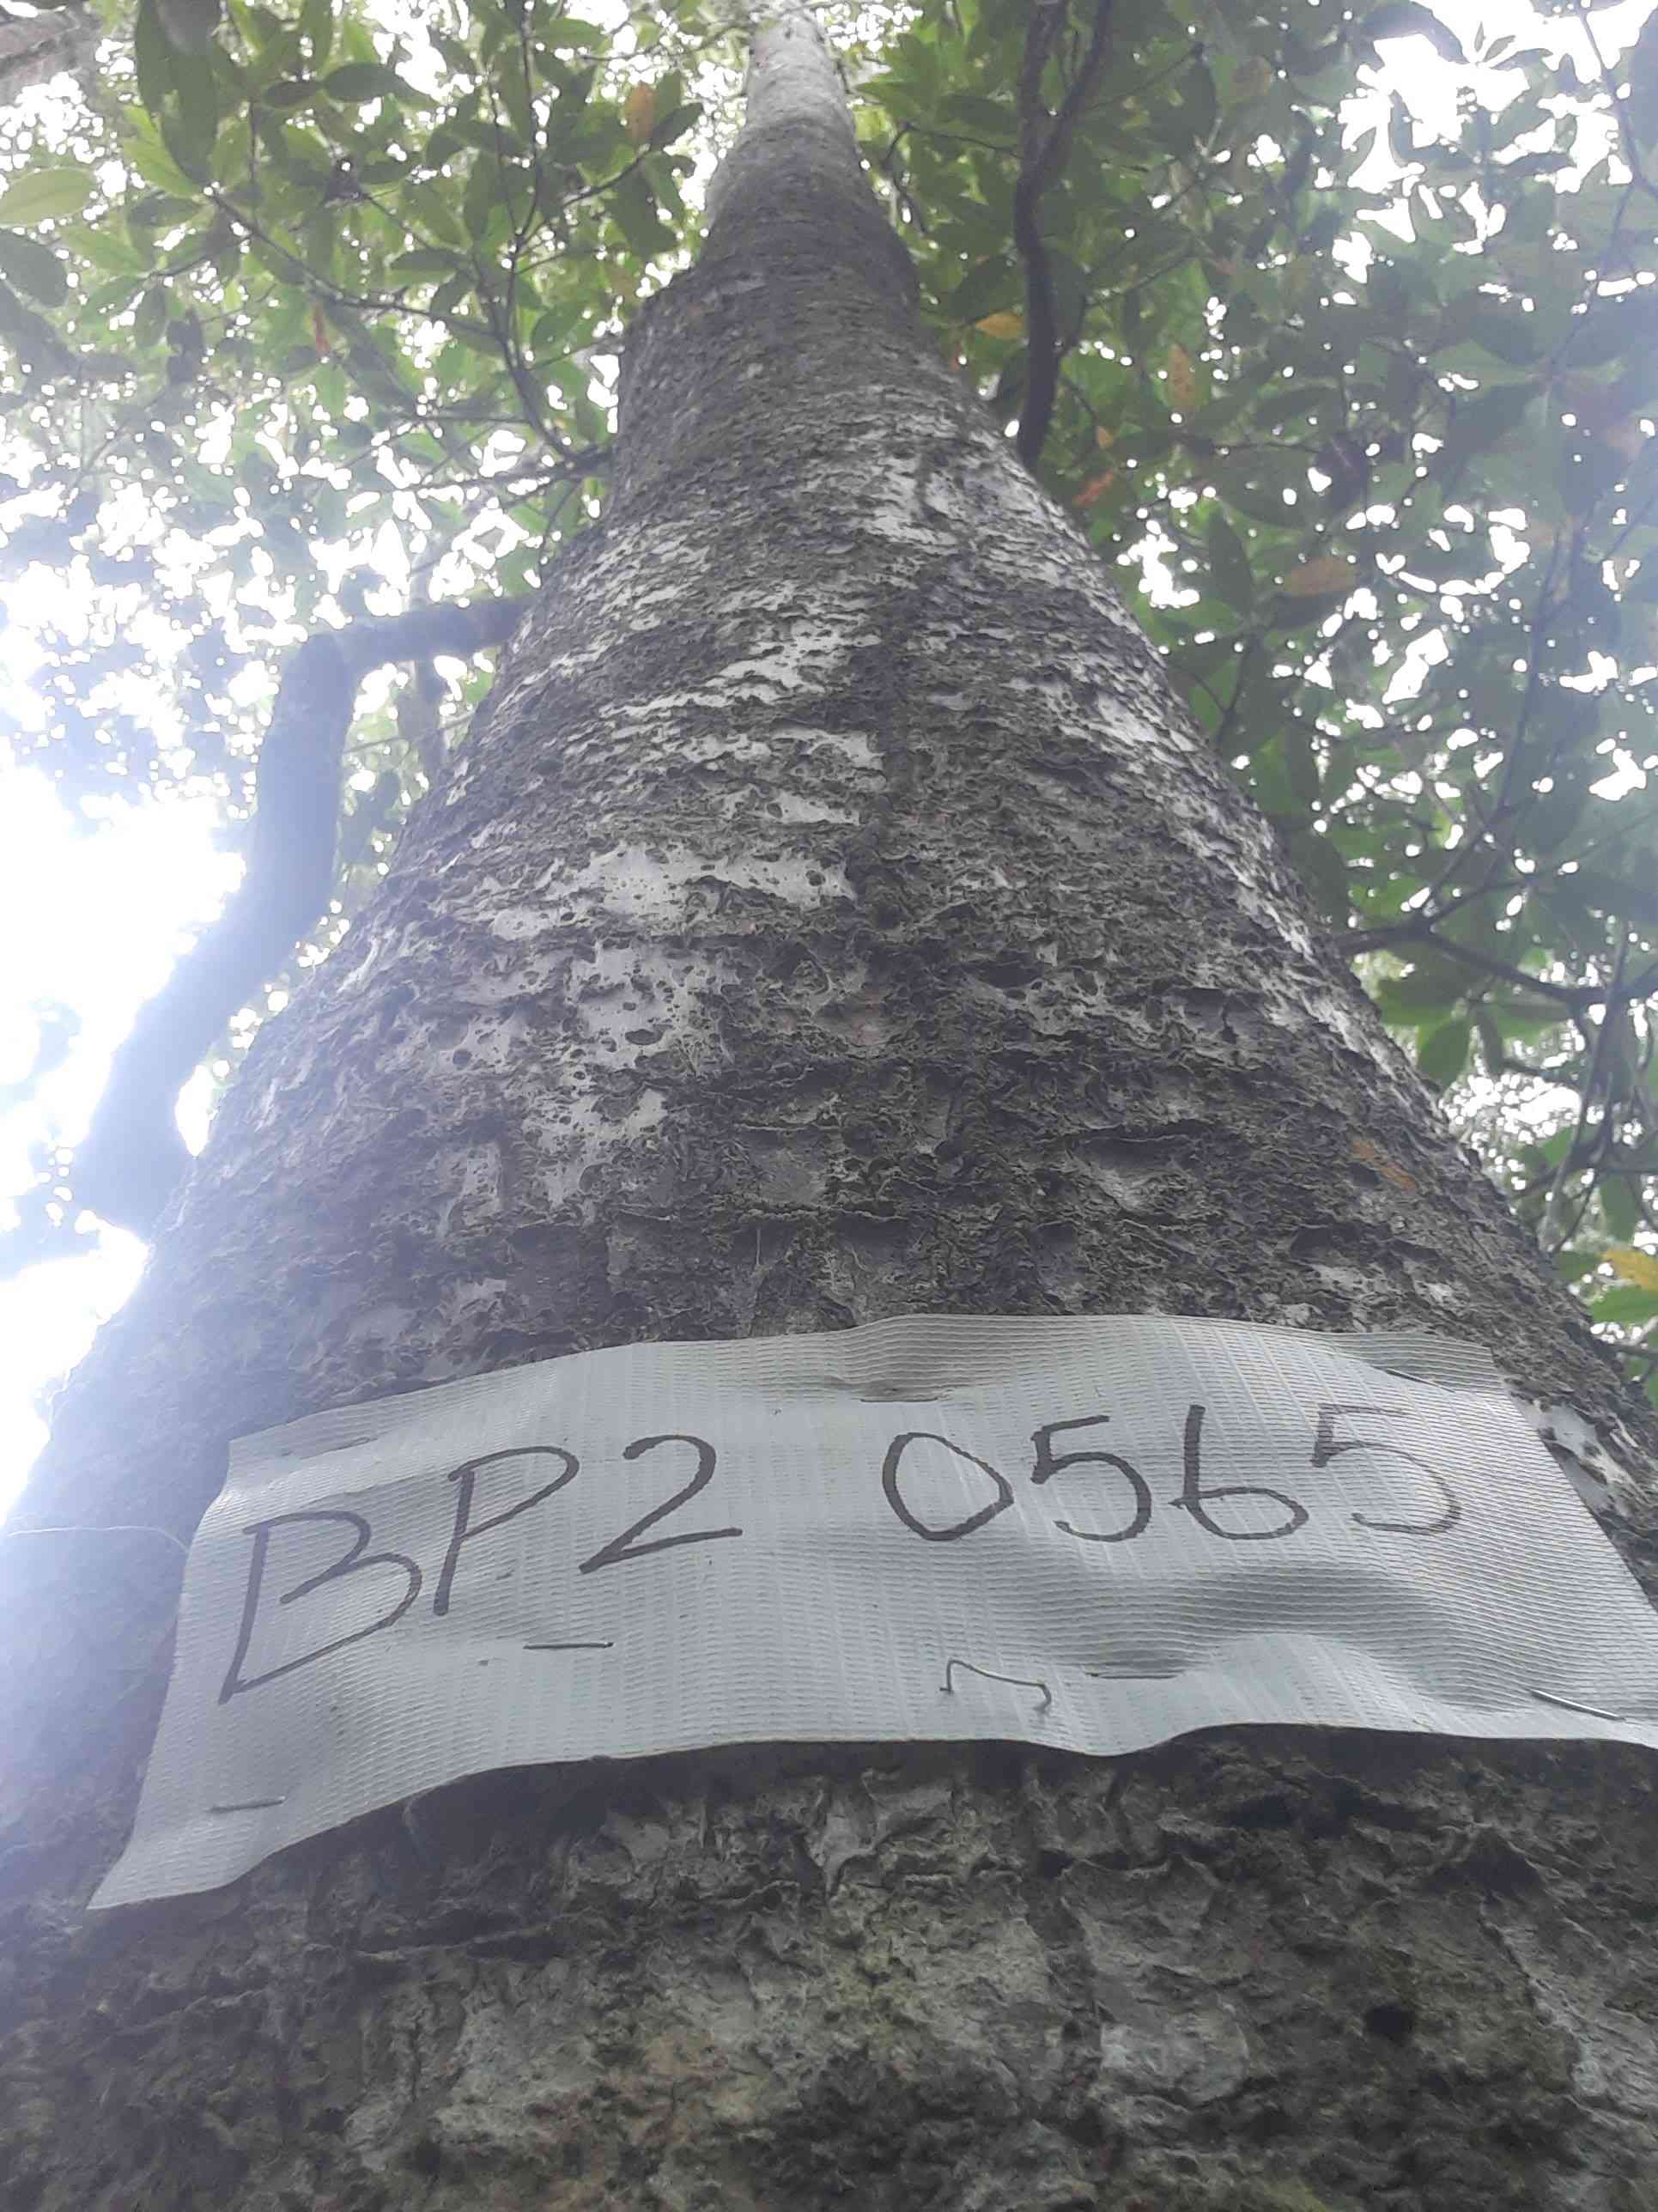 BP2 0565